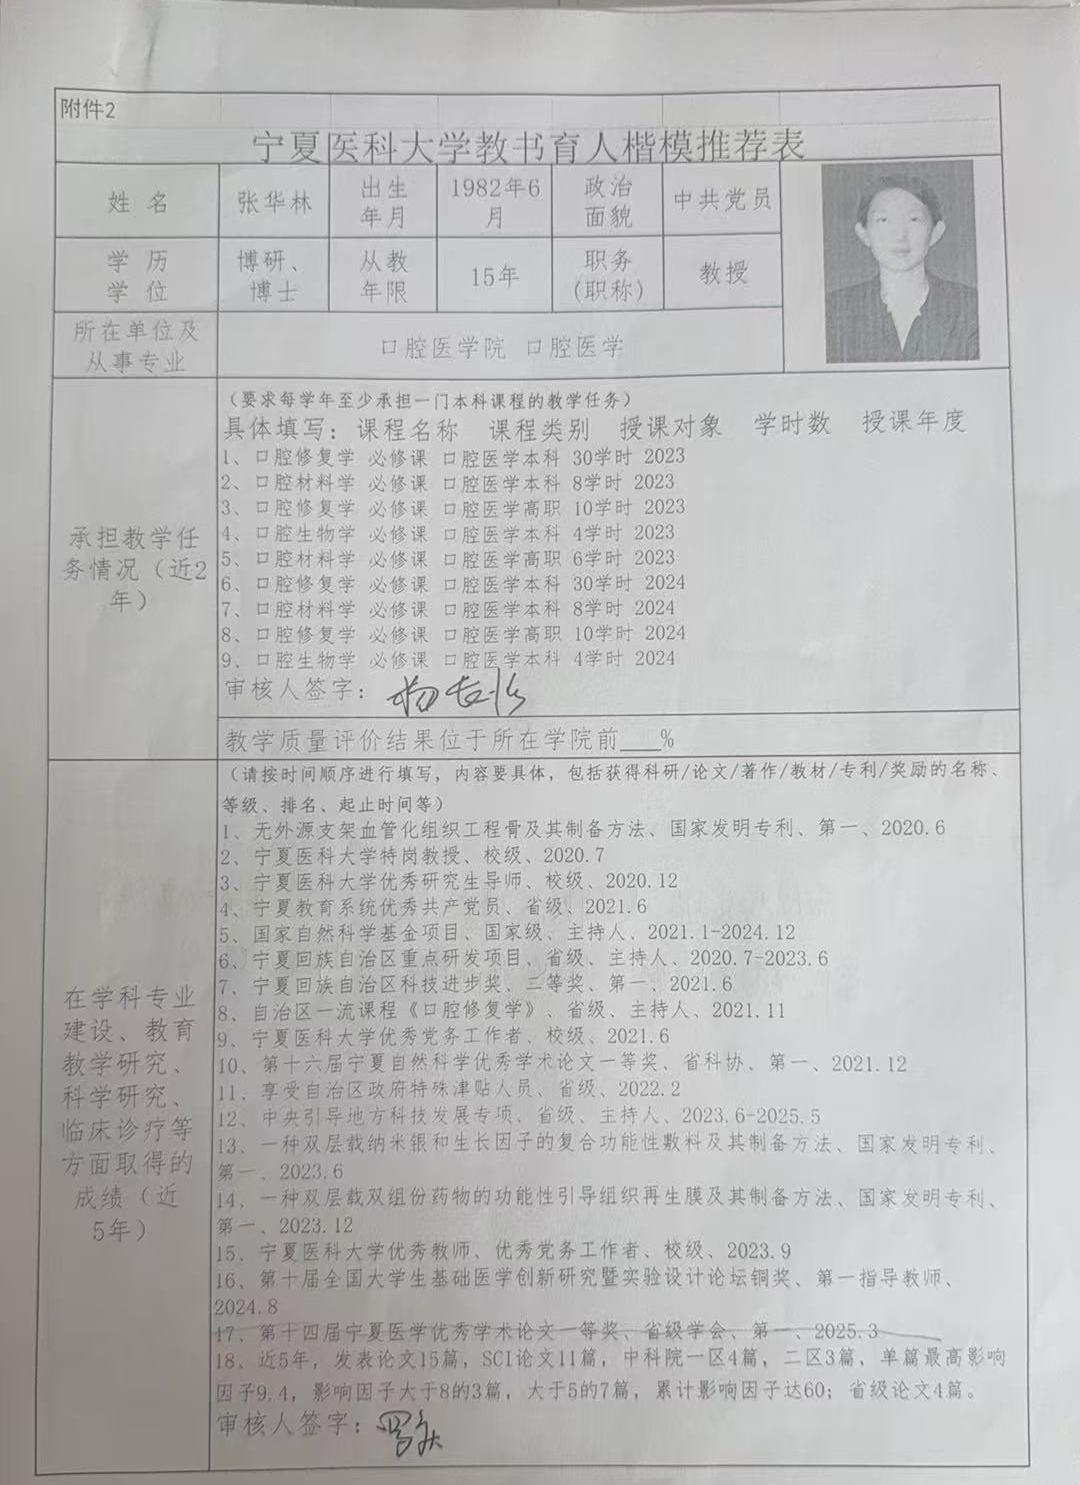 附件2
宁夏医科大学教书育人楷模推荐表
姓 名 张华林 出生年月 1982年6月 政治面貌 中共党员
学 历 学 位 博研、博士 从教年限 15年 职务(职称) 教授
所在单位及从事专业 口腔医学院 口腔医学
承担教学任务情况（近2年）
（要求每学年至少承担一门本科课程的教学任务）
具体填写：课程名称 课程类别 授课对象 学时数 授课年度
1、口腔修复学 必修课 口腔医学本科 30学时 2023
2、口腔材料学 必修课 口腔医学本科 8学时 2023
3、口腔修复学 必修课 口腔医学高职 10学时 2023
4、口腔生物学 必修课 口腔医学本科 4学时 2023
5、口腔材料学 必修课 口腔医学高职 6学时 2023
6、口腔修复学 必修课 口腔医学本科 30学时 2024
7、口腔材料学 必修课 口腔医学本科 8学时 2024
8、口腔修复学 必修课 口腔医学高职 10学时 2024
9、口腔生物学 必修课 口腔医学本科 4学时 2024
审核人签字：
教学质量评价结果位于所在学院前___%
在学科专业建设、教育教学研究、科学研究、临床诊疗等方面取得的成绩（近5年）
（请按时间顺序进行填写，内容要具体，包括获得科研/论文/著作/教材/专利/奖励的名称、
等级、排名、起止时间等）
1、无外源支架血管化组织工程骨及其制备方法、国家发明专利、第一、2020.6
2、宁夏医科大学特岗教授、校级、2020.7
3、宁夏医科大学优秀研究生导师、校级、2020.12
4、宁夏教育系统优秀共产党员、省级、2021.6
5、国家自然科学基金项目、国家级、主持人、2021.1-2024.12
6、宁夏回族自治区重点研发项目、省级、主持人、2020.7-2023.6
7、宁夏回族自治区科技进步奖、三等奖、第一、2021.6
8、自治区一流课程《口腔修复学》、省级、主持人、2021.11
9、宁夏医科大学优秀党务工作者、校级、2021.6
10、第十六届宁夏自然科学优秀学术论文一等奖、省科协、第一、2021.12
11、享受自治区政府特殊津贴人员、省级、2022.2
12、中央引导地方科技发展专项、省级、主持人、2023.6-2025.5
13、一种双层载纳米银和生长因子的复合功能性敷料及其制备方法、国家发明专利、
第一、2023.6
14、一种双层载双组份药物的功能性引导组织再生膜及其制备方法、国家发明专利、
第一、2023.12
15、宁夏医科大学优秀教师、优秀党务工作者、校级、2023.9
16、第十届全国大学生基础医学创新研究暨实验设计论坛铜奖、第一指导教师、
2024.8
17、第十四届宁夏医学优秀学术论文一等奖、省级学会、第一、2025.3
18、近5年，发表论文15篇，SCI论文11篇，中科院一区4篇，二区3篇，单篇最高影响
因子9.4，影响因子大于8的3篇，大于5的7篇，累计影响因子达60；省级论文4篇。
审核人签字：